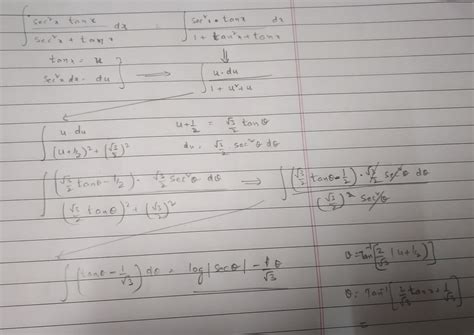 ∫ sec²x tanx / sec²x + tanx dx    ∫ sec²x · tanx / 1 + tan²x + tanx dx
tanx = u
sec²x dx = du } ⟹ ∫ u·du / 1 + u² + u
∫ u du / (u+1/2)² + (√3/2)²    u + 1/2 = √3/2 tanθ
du = √3/2 · sec²θ dθ
∫ (√3/2 tanθ - 1/2) · √3/2 sec²θ dθ / (√3/2 tanθ)² + (√3/2)² ⟹ ∫ (√3/2 tanθ - 1/2) · √3/2 sec²θ dθ / (√3/2)² sec²θ
∫ (tanθ - 1/√3) dθ = log|secθ| - 1/√3 θ    θ = tan⁻¹[2/√3 (u + 1/2)]
θ = tan⁻¹[2/√3 tanx + 1/√3]
=